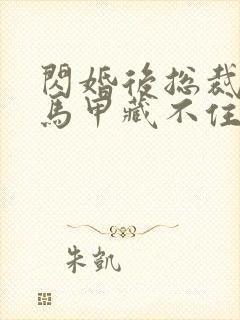 閃婚後總裁
馬甲藏不住
朱凱